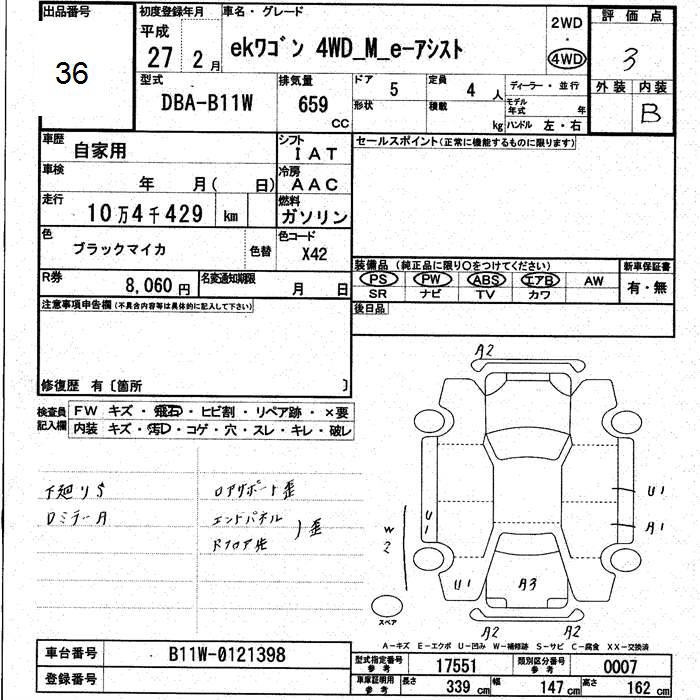 出品番号
36
初度登録年月
平成
27 2 月
車名・グレード
ekワゴン 4WD_M_e-アシスト
2WD
・
4WD
評価点
3
外装 内装
B
型式
DBA-B11W
排気量
659
CC
ドア
5
定員
4 人
形状
積載
kg
ディーラー・並行
モデル年式 年
ハンドル 左・右
車歴
自家用
シフト
IAT
車検
年 月( 日)
冷房
AAC
走行
10万4千429 km
燃料
ガソリン
色
ブラックマイカ
色替
色コード
X42
R券
8,060 円
名変通知期限
月 日
セールスポイント(正常に機能するものに限ります)
装備品 (純正品に限り○をつけてください)
PS PW ABS エアB AW
SR ナビ TV カワ
新車保証書
有・無
後日品
注意事項申告欄(不具合内容等は具体的に記入して下さい)
修復歴 有〔箇所 〕
検査員記入欄
FW キズ・飛石・ヒビ割・リペア跡・×要
内装 キズ・汚れ・コゲ・穴・スレ・キレ・破レ
下廻りS
ロアサポート歪
エンドパネル
歪
A2
U1
A1
U1
W2
U1
A3
A2
A2
スペア
A-キズ E-エクボ U-凹み W-補修跡 S-サビ C-腐食 XX-交換済
車台番号
B11W-0121398
登録番号
型式指定番号 参考
17551
類別区分番号 参考
0007
車庫証明用 参考
長さ 339 cm
幅 147 cm
高さ 162 cm